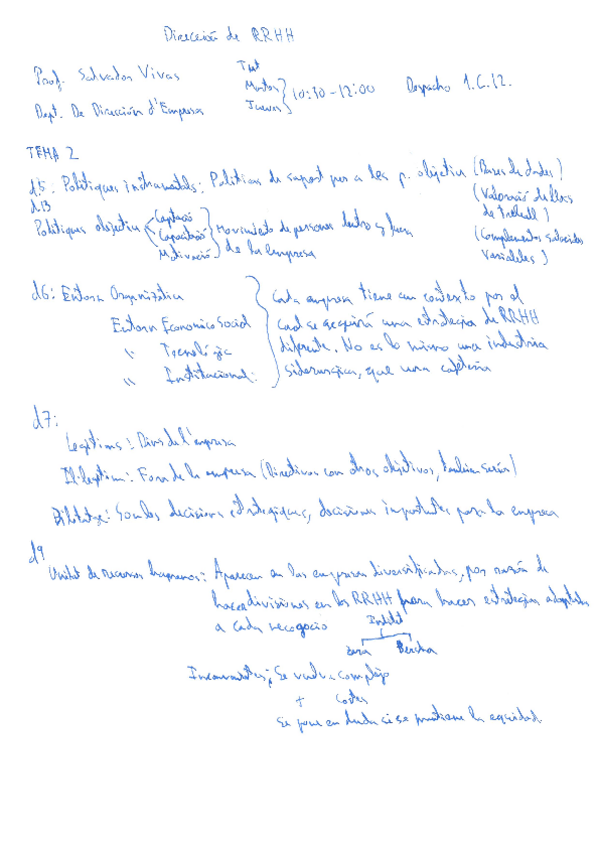 Dirección de RRHH
Prof. Salvador Vivas
Dept. De Dirección d'Empresa
Tut
Martes
Jueves
10:30-12:00
Despacho 1.C.12.
TEMA 2
d.5. Polítiques instrumentals: Políticas de suport per a les p. objetiu (Bases de dades)
d.13
(Valoració de llocs de treball)
(Complementos salariales variables)
Polítiques objetiu
Captació
Capacitació
Motivació
Movimiento de personas dentro y fuera
de la empresa
d6: Entorn Organizatiu
Entorn Economico Social
" Tecnológic
" Institucional:
Cada empresa tiene un contexto por el
cual se requirirá una estrategia de RRHH
diferente. No es lo mismo una industria
siderurgica, que una cafeteria
d7:
Legitims: Dins de l'empresa
Il·legitim: Fora de la empresa (Directivos con otros objetivos, también serían)
Son las decisions estratègiques, decisiones importantes para la empresa
d9
Unitat de recursos humanos: Aparecen en las empresas diversificadas, por razón de
hacer divisiones en los RRHH para hacer estrategias adaptadas
a cada negocio
Inditex
Zara Bershka
Inconvenientes: Se vuelve complejo
+ Costes
Se pone en duda si se mantiene la equidad.